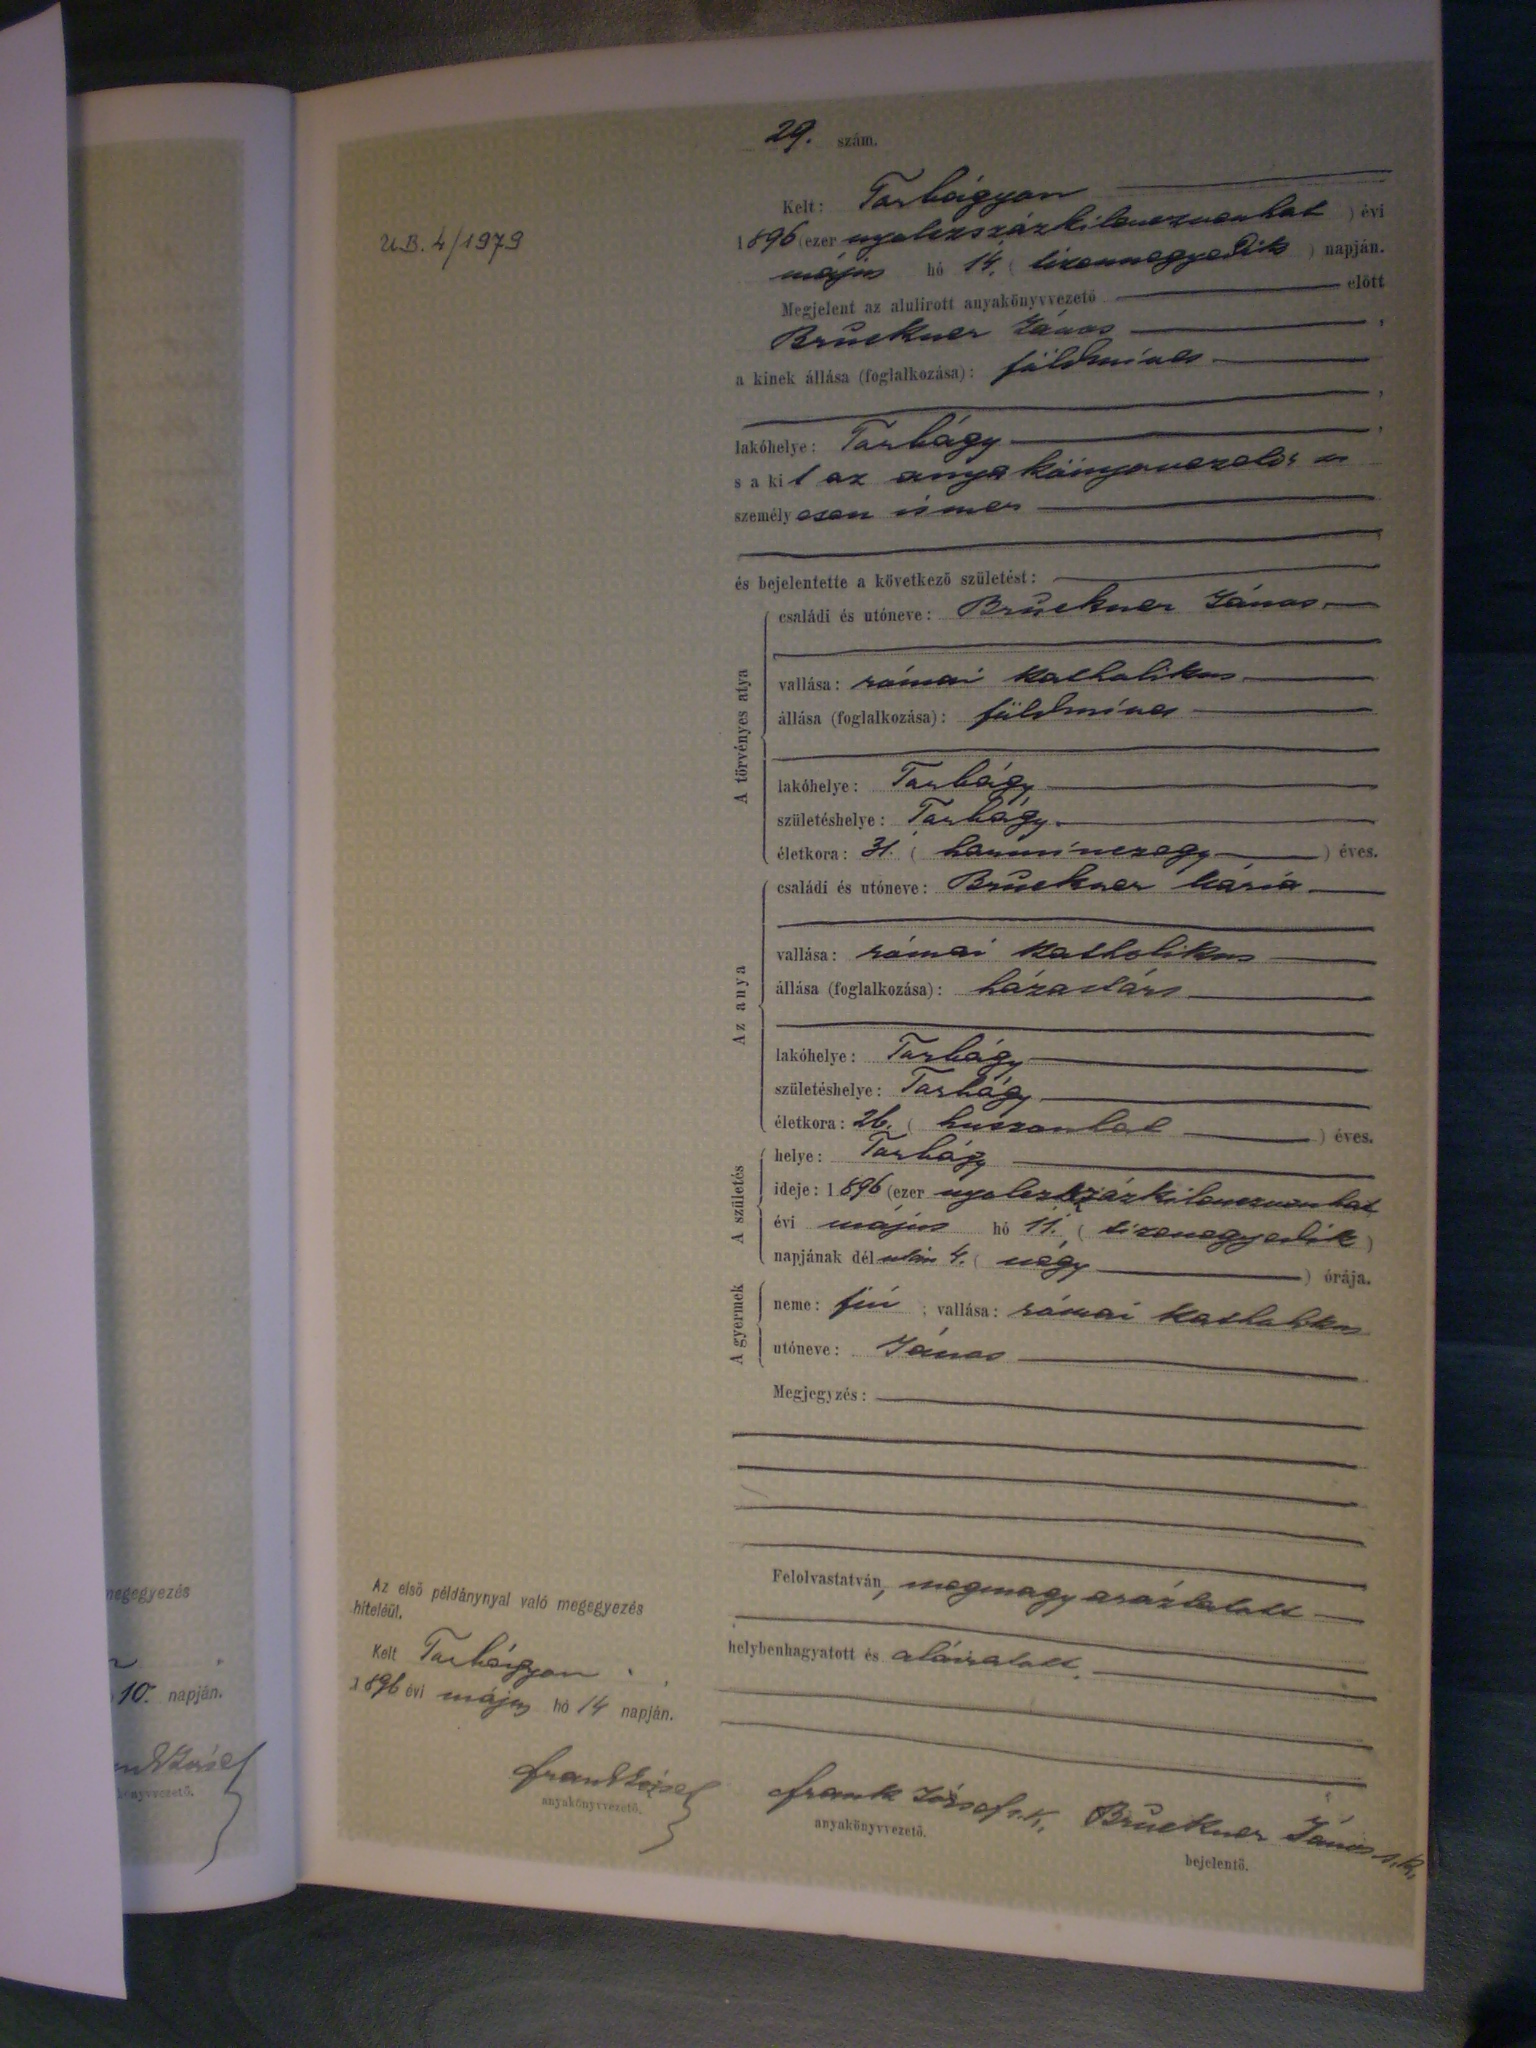 29. szám.
U.B. 4/1979
Kelt: Torbágyon
1896 (ezer nyolczszázkilenczvenhat ) évi
május hó 14. ( tizennegyedik ) napján.
Megjelent az alulirott anyakönyvvezető előtt
Bruckner János ,
a kinek állása (foglalkozása): földmíves
,
lakóhelye: Torbágy ,
s a kit az anyakönyvvezető
személyesen ismer
és bejelentette a következő születést:
A törvényes atya
családi és utóneve: Bruckner János
vallása: római katholikus
állása (foglalkozása): földmíves
lakóhelye: Torbágy
születéshelye: Torbágy
életkora: 31. ( harminczegy ) éves.
Az anya
családi és utóneve: Bruckner Mária
vallása: római katholikus
állása (foglalkozása): házastárs
lakóhelye: Torbágy
születéshelye: Torbágy
életkora: 26. ( huszonhat ) éves.
A születés
helye: Torbágy
ideje: 1896 (ezer nyolczszázkilenczvenhat
évi május hó 11. ( tizenegyedik )
napjának dél után 4. ( négy ) órája.
A gyermek
neme: fiú ; vallása: római katholikus
utóneve: János
Megjegyzés:
Felolvastatván, megmagyaráztatott
helybenhagyatott és aláíratott.
Frank József s.k. Bruckner János s.k.
anyakönyvvezető. bejelentő.
Az első példánynyal való megegyezés
hiteléül.
Kelt Torbágyon
1896 évi május hó 14 napján.
Frank József
anyakönyvvezető.
megegyezés
10. napján.
József
könyvvezető.